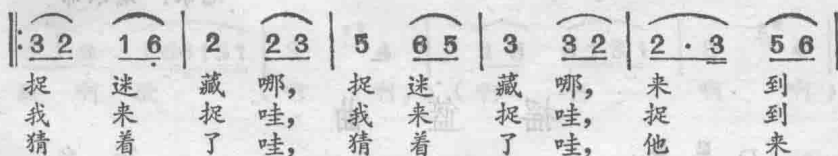 ‖: 3 2 1 6 | 2 2 3 | 5 6 5 | 3 3 2 | 2 · 3 5 6 |
捉 迷 藏 哪， 捉 迷 藏 哪， 来 到
我 来 捉 哇， 我 来 捉 哇， 捉 到
猜 着 了 哇， 猜 着 了 哇， 他 来